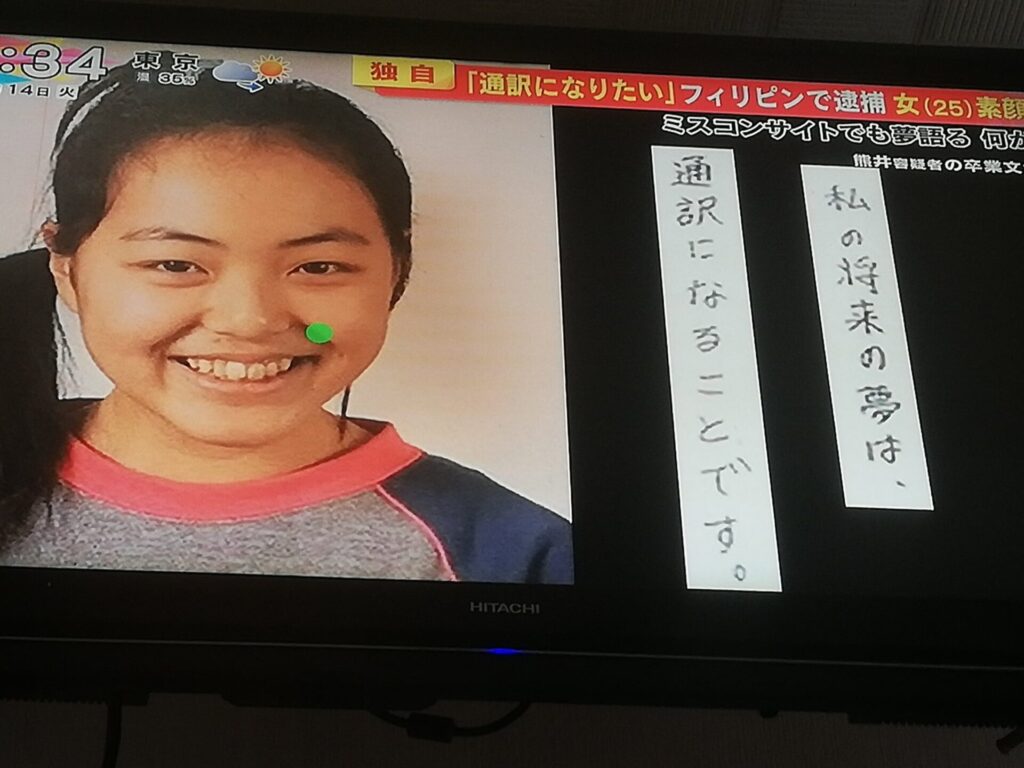 :34
東京
湿 35%
14日 火
独自
「通訳になりたい」フィリピンで逮捕 女(25)素顔
ミスコンサイトでも夢語る 何か
熊井容疑者の卒業文
私の将来の夢は、
通訳になることです。
HITACHI